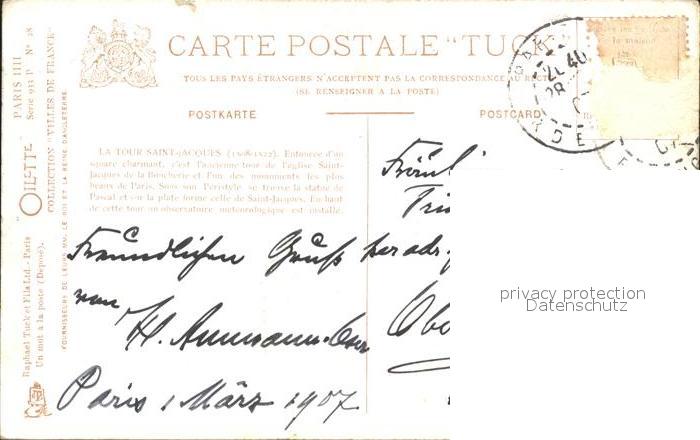 CARTE POSTALE "TUCK"
TOUS LES PAYS ÉTRANGERS N'ACCEPTENT PAS LA CORRESPONDANCE AU RECTO
(SE RENSEIGNER A LA POSTE)
POSTKARTE
POSTCARD
LA TOUR SAINT-JACQUES (1508-1522). Entourée d'un
square charmant, c'est l'ancienne tour de l'église Saint-
Jacques de la Boucherie et l'un des monuments les plus
beaux de Paris. Sous son Péristyle se trouve la statue de
Pascal et sur la plate forme celle de Saint-Jacques. En haut
de cette tour un observatoire météorologique est installé.
PARIS IIII
Série 913 P Nº 28
COLLECTION "VILLES DE FRANCE"
"OILETTE"
Raphael Tuck et Fils Ltd.- Paris
Un mot à la poste (Déposé).
FOURNISSEURS DE LEURS MM. LE ROI ET LA REINE D'ANGLETERRE
Freundlichen Gruß
von
H. Ammann
Paris 1 März 1907.
Fräul
per adr.
Obe
privacy protection
Datenschutz